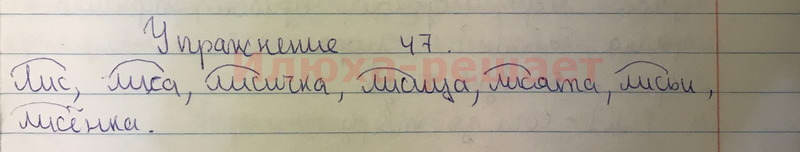 Упражнение 47.
Илюха-решает
Лис, лиса, лисичка, лисица, лисята, лисьи,
лисёнка.